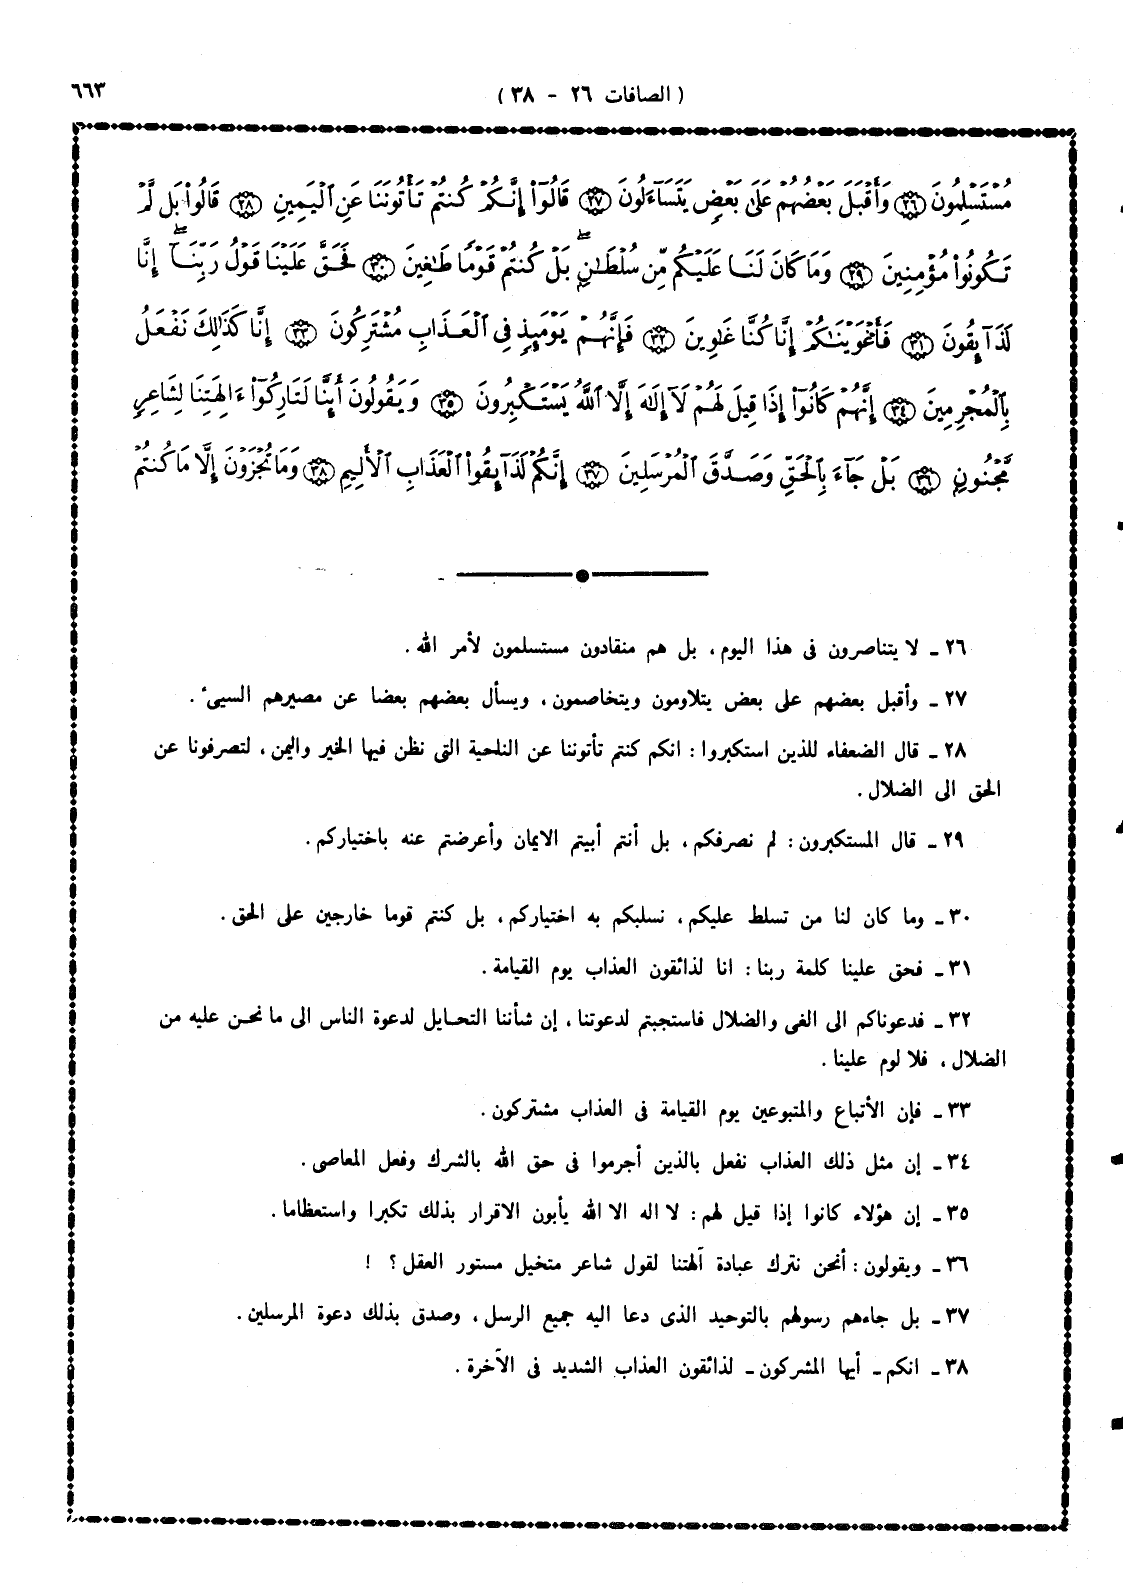 ٦٦٣
( الصافات ٢٦ - ٣٨ )
مُسْتَسْلِمُونَ ﴿٢٦﴾ وَأَقْبَلَ بَعْضُهُمْ عَلَىٰ بَعْضٍ يَتَسَآءَلُونَ ﴿٢٧﴾ قَالُوٓا۟ إِنَّكُمْ كُنتُمْ تَأْتُونَنَا عَنِ ٱلْيَمِينِ ﴿٢٨﴾ قَالُوا۟ بَل لَّمْ
تَكُونُوا۟ مُؤْمِنِينَ ﴿٢٩﴾ وَمَا كَانَ لَنَا عَلَيْكُم مِّن سُلْطَٰنٍۭ ۖ بَلْ كُنتُمْ قَوْمًا طَٰغِينَ ﴿٣٠﴾ فَحَقَّ عَلَيْنَا قَوْلُ رَبِّنَآ ۖ إِنَّا
لَذَآئِقُونَ ﴿٣١﴾ فَأَغْوَيْنَٰكُمْ إِنَّا كُنَّا غَٰوِينَ ﴿٣٢﴾ فَإِنَّهُمْ يَوْمَئِذٍ فِى ٱلْعَذَابِ مُشْتَرِكُونَ ﴿٣٣﴾ إِنَّا كَذَٰلِكَ نَفْعَلُ
بِٱلْمُجْرِمِينَ ﴿٣٤﴾ إِنَّهُمْ كَانُوٓا۟ إِذَا قِيلَ لَهُمْ لَآ إِلَٰهَ إِلَّا ٱللَّهُ يَسْتَكْبِرُونَ ﴿٣٥﴾ وَيَقُولُونَ أَئِنَّا لَتَارِكُوٓا۟ ءَالِهَتِنَا لِشَاعِرٍ
مَّجْنُونٍۭ ﴿٣٦﴾ بَلْ جَآءَ بِٱلْحَقِّ وَصَدَّقَ ٱلْمُرْسَلِينَ ﴿٣٧﴾ إِنَّكُمْ لَذَآئِقُوا۟ ٱلْعَذَابِ ٱلْأَلِيمِ ﴿٣٨﴾ وَمَا تُجْزَوْنَ إِلَّا مَا كُنتُمْ
٢٦ ـ لا يتناصرون فى هذا اليوم ، بل هم منقادون مستسلمون لأمر الله .
٢٧ ـ وأقبل بعضهم على بعض يتلاومون ويتخاصمون ، ويسأل بعضهم بعضا عن مصيرهم السيىء .
٢٨ ـ قال الضعفاء للذين استكبروا : انكم كنتم تأتوننا عن النلحية التى نظن فيها الخير واليمن ، لتصرفونا عن
الحق الى الضلال .
٢٩ ـ قال المستكبرون : لم نصرفكم ، بل أنتم أبيتم الايمان وأعرضتم عنه باختياركم .
٣٠ ـ وما كان لنا من تسلط عليكم ، نسلبكم به اختياركم ، بل كنتم قوما خارجين على الحق .
٣١ ـ فحق علينا كلمة ربنا : انا لذائقون العذاب يوم القيامة .
٣٢ ـ فدعوناكم الى الغى والضلال فاستجبتم لدعوتنا ، إن شأننا التحايل لدعوة الناس الى ما نحن عليه من
الضلال ، فلا لوم علينا .
٣٣ ـ فإن الأتباع والمتبوعين يوم القيامة فى العذاب مشتركون .
٣٤ ـ إن مثل ذلك العذاب نفعل بالذين أجرموا فى حق الله بالشرك وفعل المعاصى .
٣٥ ـ إن هؤلاء كانوا إذا قيل لهم : لا اله الا الله يأبون الاقرار بذلك تكبرا واستعظاما .
٣٦ ـ ويقولون : أنحن نترك عبادة آلهتنا لقول شاعر متخيل مستور العقل ؟ !
٣٧ ـ بل جاءهم رسولهم بالتوحيد الذى دعا اليه جميع الرسل ، وصدق بذلك دعوة المرسلين .
٣٨ ـ انكم ـ أيها المشركون ـ لذائقون العذاب الشديد فى الآخرة .